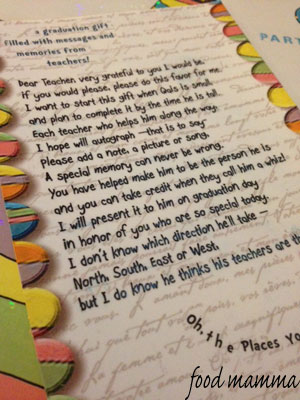 a graduation gift
filled with messages and
memories from
teachers!
PART
Dear Teacher, very grateful to you I would be,
if you would please, please do this favor for me.
I want to start this gift when is small,
and plan to complete it by the time he is tall.
Each teacher who helps him along the way,
I hope will autograph —that is to say
please add a note, a picture or song.
A special memory can never be wrong.
You have helped make him to be the person he is
and you can take credit when they call him a whiz!
I will present it to him on graduation day
in honor of you who are so special today.
I don't know which direction he'll take —
North, South, East or West,
but I do know he thinks his teachers are th
Oh, the Places Yo
food mamma